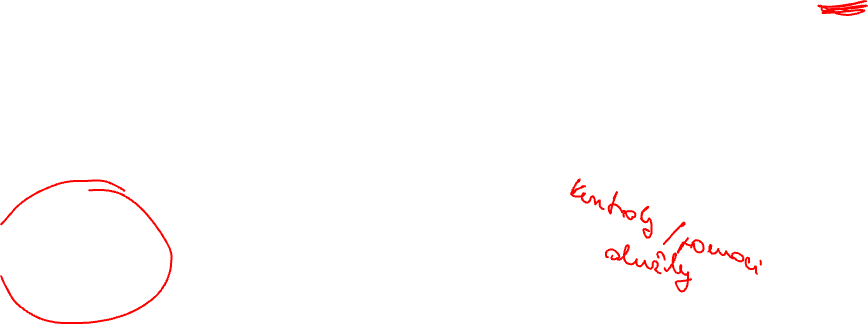 kontroly / pomocí
služby